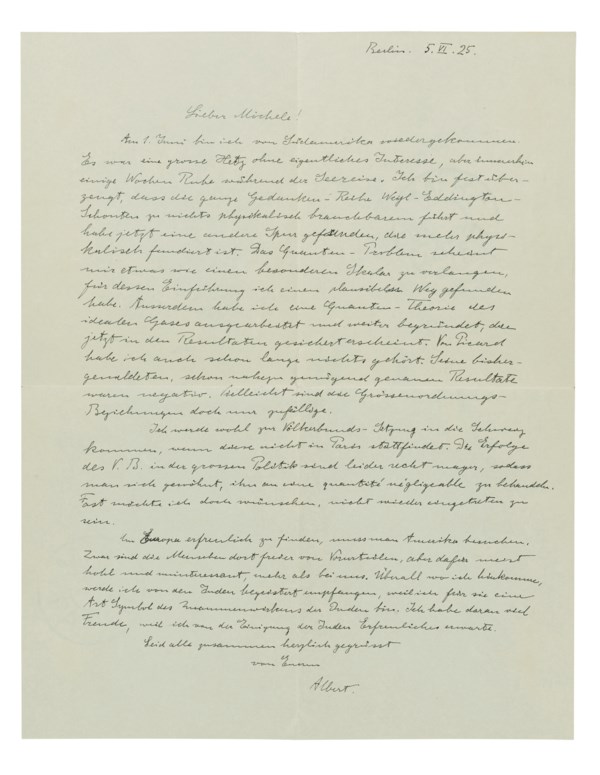 Berlin. 5. VI. 25.
Lieber Michele!
Am 1. Juni bin ich von Südamerika wiedergekommen.
Es war eine grosse Hetz ohne eigentliches Interesse, aber immerhin
einige Wochen Ruhe während der Seereise. Ich bin fest über-
zeugt, dass die ganze Gedanken-Reihe Weyl-Eddington-
Schouten zu nichts physikalisch brauchbarem führt und
habe jetzt eine andere Spur gefunden, die mehr physi-
kalisch fundiert ist. Das Quanten-Problem scheint
mir etwas wie einen besonderen Skalar zu verlangen,
für dessen Einführung ich einen plausibeln Weg gefunden
habe. Ausserdem habe ich eine Quanten-Theorie des
idealen Gases ausgearbeitet und weiter begründet, die
jetzt in den Resultaten gesichert erscheint. Von Picard
habe ich auch schon lange nichts gehört. Seine bisher
gemeldeten, schon nahezu genügend genauen Resultate
waren negativ. Vielleicht sind die Grössenordnungs-
Beziehungen doch nur zufällige.
Ich werde wohl zur Völkerbunds-Sitzung in die Schweiz
kommen, wenn diese nicht in Paris stattfindet. Die Erfolge
des V. B. in der grossen Politik sind leider recht mager, sodass
man sich gewöhnt, ihn als eine quantité négligeable zu behandeln.
Fast möchte ich doch wünschen, nicht wieder eingetreten zu
sein.
Um Europa erfreulich zu finden, muss man Amerika besuchen.
Zwar sind die Menschen dort freier von Vorurteilen, aber dafür meist
hohl und uninteressant, mehr als bei uns. Überall wo ich hinkomme,
werde ich von den Juden begeistert empfangen, weil ich für sie eine
Art Symbol des Zusammenwirkens der Juden bin. Ich habe daran viel
Freude, weil ich von der Einigung der Juden Erfreuliches erwarte.
Seid alle zusammen herzlich gegrüsst
von Eurem
Albert.